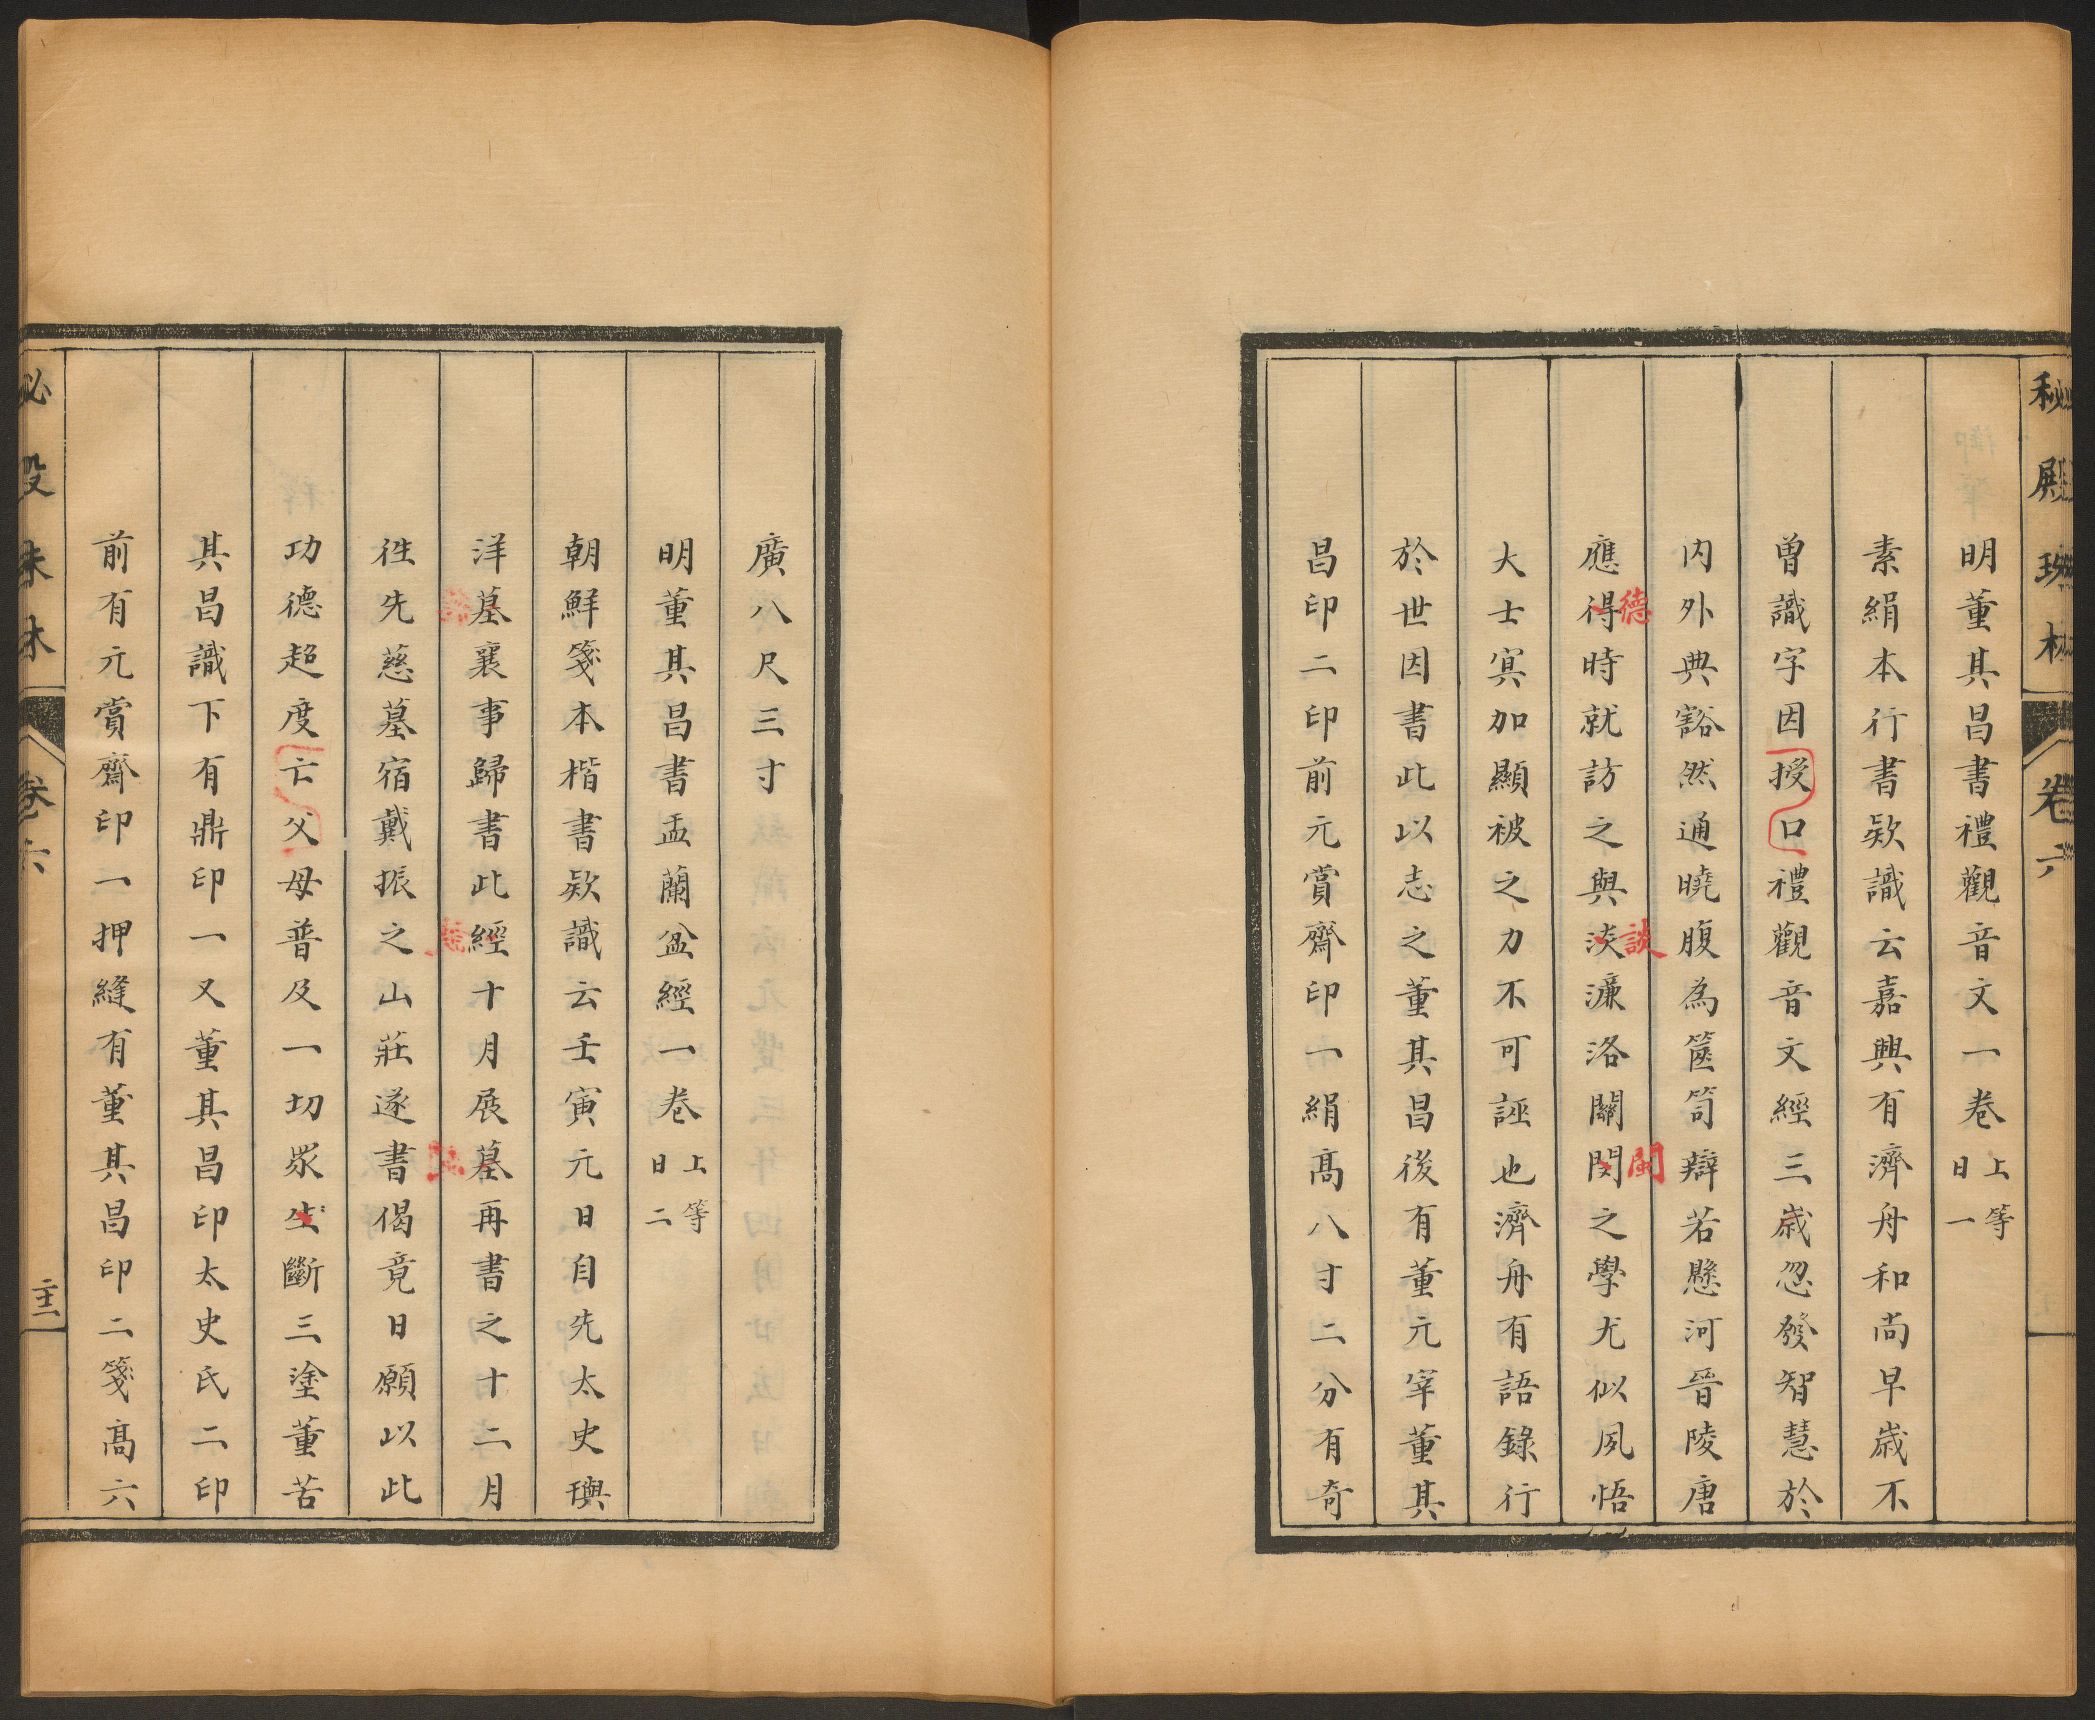 秘殿珠林 卷六
明董其昌書禮觀音文一卷 上等日一
素絹本行書欵識云嘉興有濟舟和尚早歲不
曾識字因授口禮觀音文經三歲忽發智慧於
内外典豁然通曉腹為篋笥辯若懸河晉陵唐
應得時就訪之與淡濂洛關閔之學尤似夙悟
德
談
閩
大士冥加顯被之力不可誣也濟舟有語錄行
於世因書此以志之董其昌後有董元宰董其
昌印二印前元賞齋印一絹高八寸二分有奇
廣八尺三寸
明董其昌書盂蘭盆經一卷 上等日二
朝鮮箋本楷書欵識云壬寅元日自先太史璵
洋墓襄事歸書此經十月展墓再書之十二月
徃先慈墓宿戴振之山莊遂書偈竟日願以此
功德超度亡父母普及一切眾生斷三塗董苦
其昌識下有鼎印一又董其昌印太史氏二印
前有元賞齋印一押縫有董其昌印二箋高六
秘殿珠林 卷六